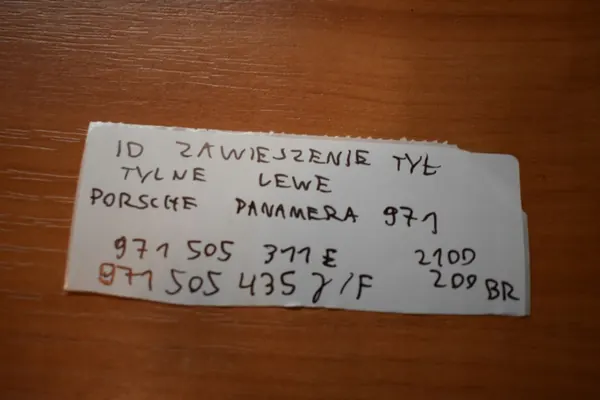 ID ZAWIESZENIE TYŁ
TYLNE LEWE
PORSCHE PANAMERA 971
971 505 311 E 210D
971 505 435 J/F 209 BR